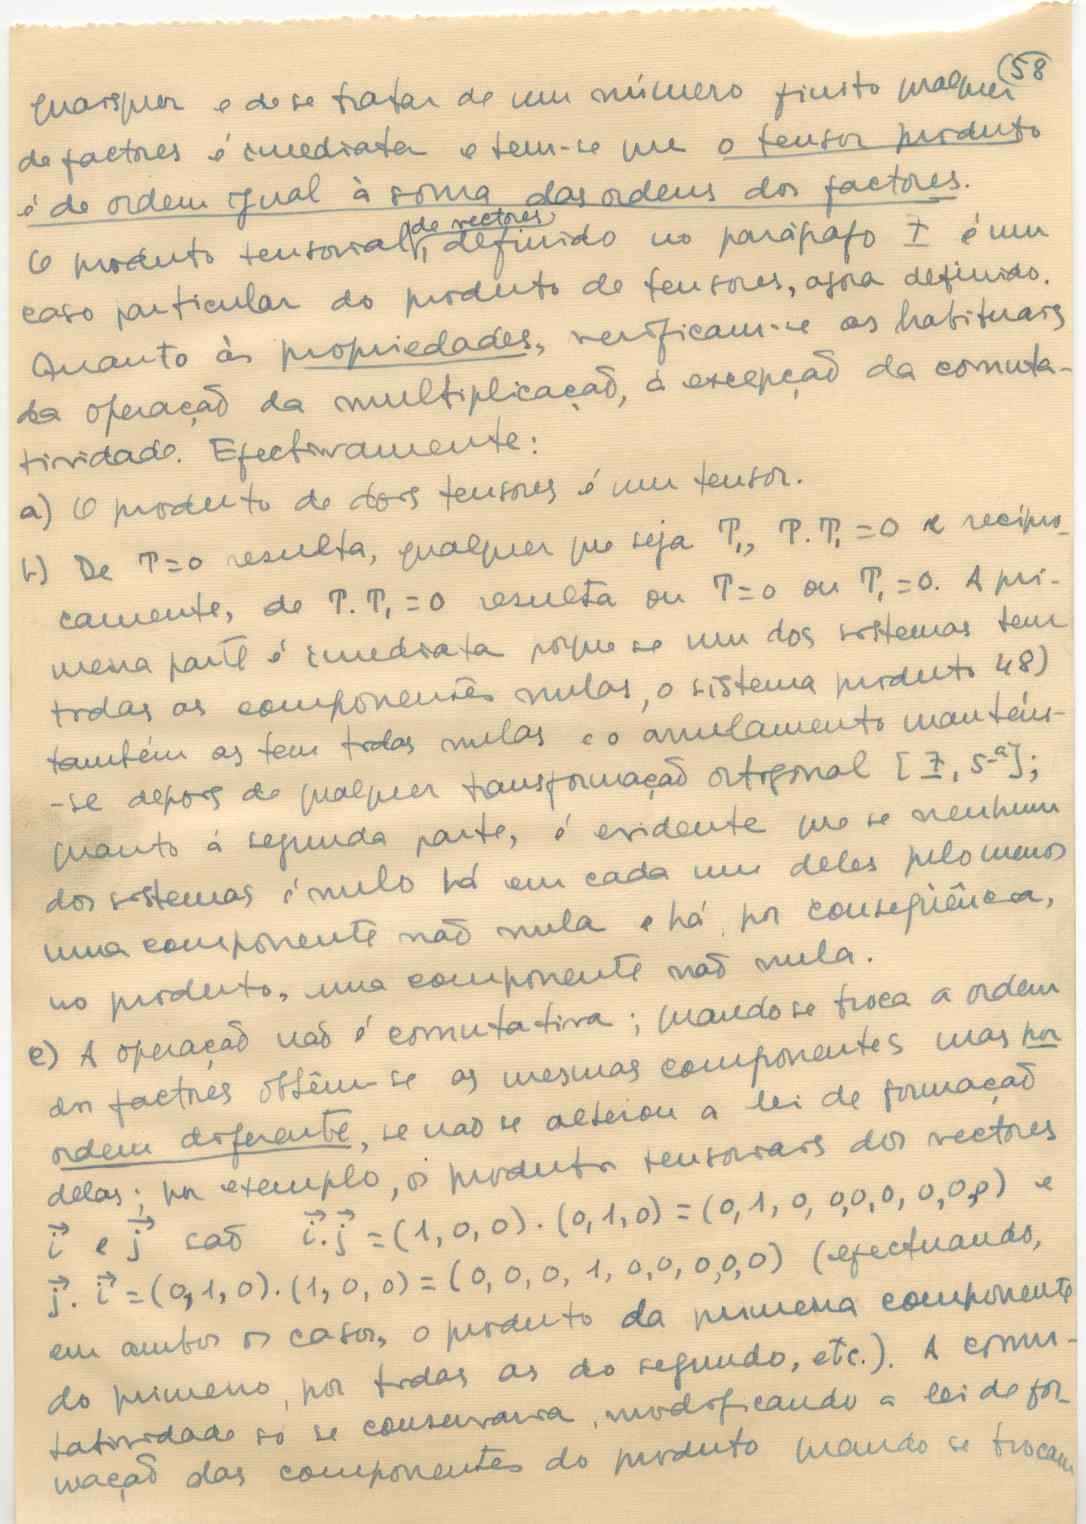 (58
quaisquer e de se tratar de um número finito qualquer
de factores é imediata e tem-se que o tensor produto
é de ordem igual à soma das ordens dos factores.
O produto tensorial, de vectores, definido no parágrafo I é um
caso particular do produto de tensores, agora definido.
Quanto às propriedades, verificam-se as habituais
da operação da multiplicação, à excepção da comuta-
tividade. Efectivamente:
a) O produto de dois tensores é um tensor.
b) De T=0 resulta, qualquer que seja T₁, T.T₁=0 e recipro-
camente, de T.T₁=0 resulta ou T=0 ou T₁=0. A pri-
meira parte é imediata porque se um dos sistemas tem
todas as componentes nulas, o sistema produto 48)
também as tem todas nulas e o anulamento mantém-
-se depois de qualquer transformação ortogonal [I, 5-a];
quanto à segunda parte, é evidente que se nenhum
dos sistemas é nulo há em cada um deles pelo menos
uma componente não nula e há, por conseqüência,
no produto, uma componente não nula.
c) A operação não é comutativa; quando se troca a ordem
dos factores obtêm-se as mesmas componentes mas por
ordem diferente, se não se alterou a lei de formação
delas; por exemplo, os produtos tensoriais dos vectores
i⃗ e j⃗ são i⃗.j⃗ = (1,0,0).(0,1,0) = (0,1,0,0,0,0,0,0,0) e
j⃗.i⃗ = (0,1,0).(1,0,0) = (0,0,0,1,0,0,0,0,0) (efectuando,
em ambos os casos, o produto da primeira componente
do primeiro, por todas as do segundo, etc.). A comu-
tatividade só se conservaria, modificando a lei de for-
mação das componentes do produto quando se trocam